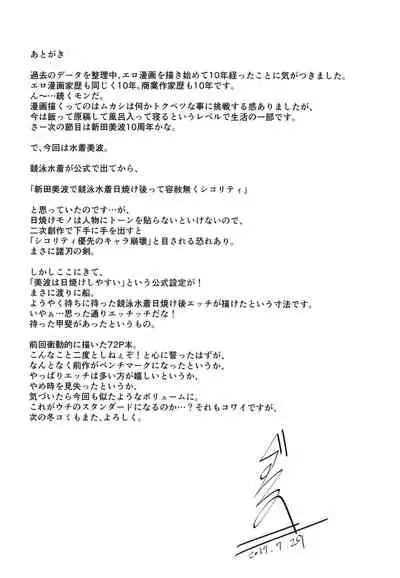 あとがき
過去のデータを整理中、エロ漫画を描き始めて10年経ったことに気がつきました。
エロ漫画家歴も同じく10年。商業作家歴も10年です。
ん〜…続くモンだ。
漫画描くってのはムカシは何かトクベツな事に挑戦する感ありましたが、
今は飯って原稿して風呂入って寝るというレベルで生活の一部です。
さー次の節目は新田美波10周年かな。
で、今回は水着美波。
競泳水着が公式で出てから、
「新田美波で競泳水着日焼け後って容赦無くシコリティ」
と思っていたのです…が、
日焼けモノは人物にトーンを貼らないといけないので、
二次創作で下手に手を出すと
「シコリティ優先のキャラ崩壊」と目される恐れあり。
まさに諸刃の剣。
しかしここにきて、
「美波は日焼けしやすい」という公式設定が！
まさに渡りに船。
ようやく待ちに待った競泳水着日焼け後エッチが描けたという寸法です。
いやぁ…思った通りエッチッチだな！
待った甲斐があったというもの。
前回衝動的に描いた72P本。
こんなこと二度としねぇぞ！と心に誓ったはずが、
なんとなく前作がベンチマークになったというか、
やっぱりエッチは多い方が嬉しいというか、
やめ時を見失ったというか、
気づいたら今回も似たようなボリュームに。
これがウチのスタンダードになるのか…？それもコワイですが、
次の冬コミもまた、よろしく。
2017.7.29